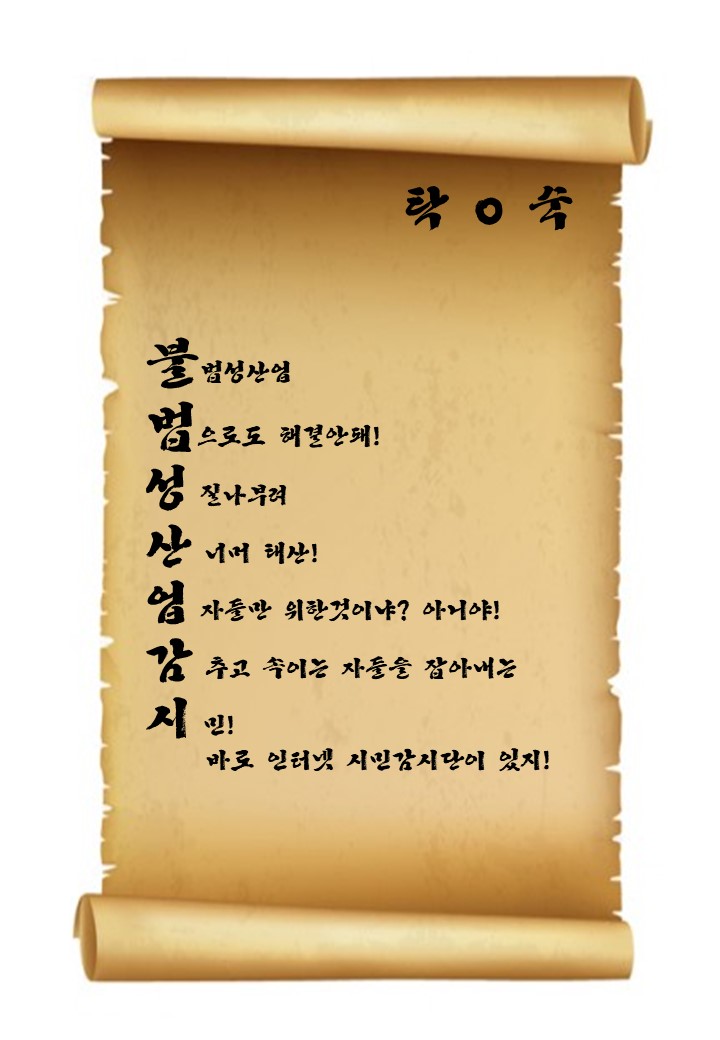 탁 ㅇ 숙
불법성산업
법으로도 해결안돼!
성 질나부려
산 너머 태산!
업 자들만 위한것이냐? 아니야!
감 추고 속이는 자들을 잡아내는
시 민!
바로 인터넷 시민감시단이 있지!